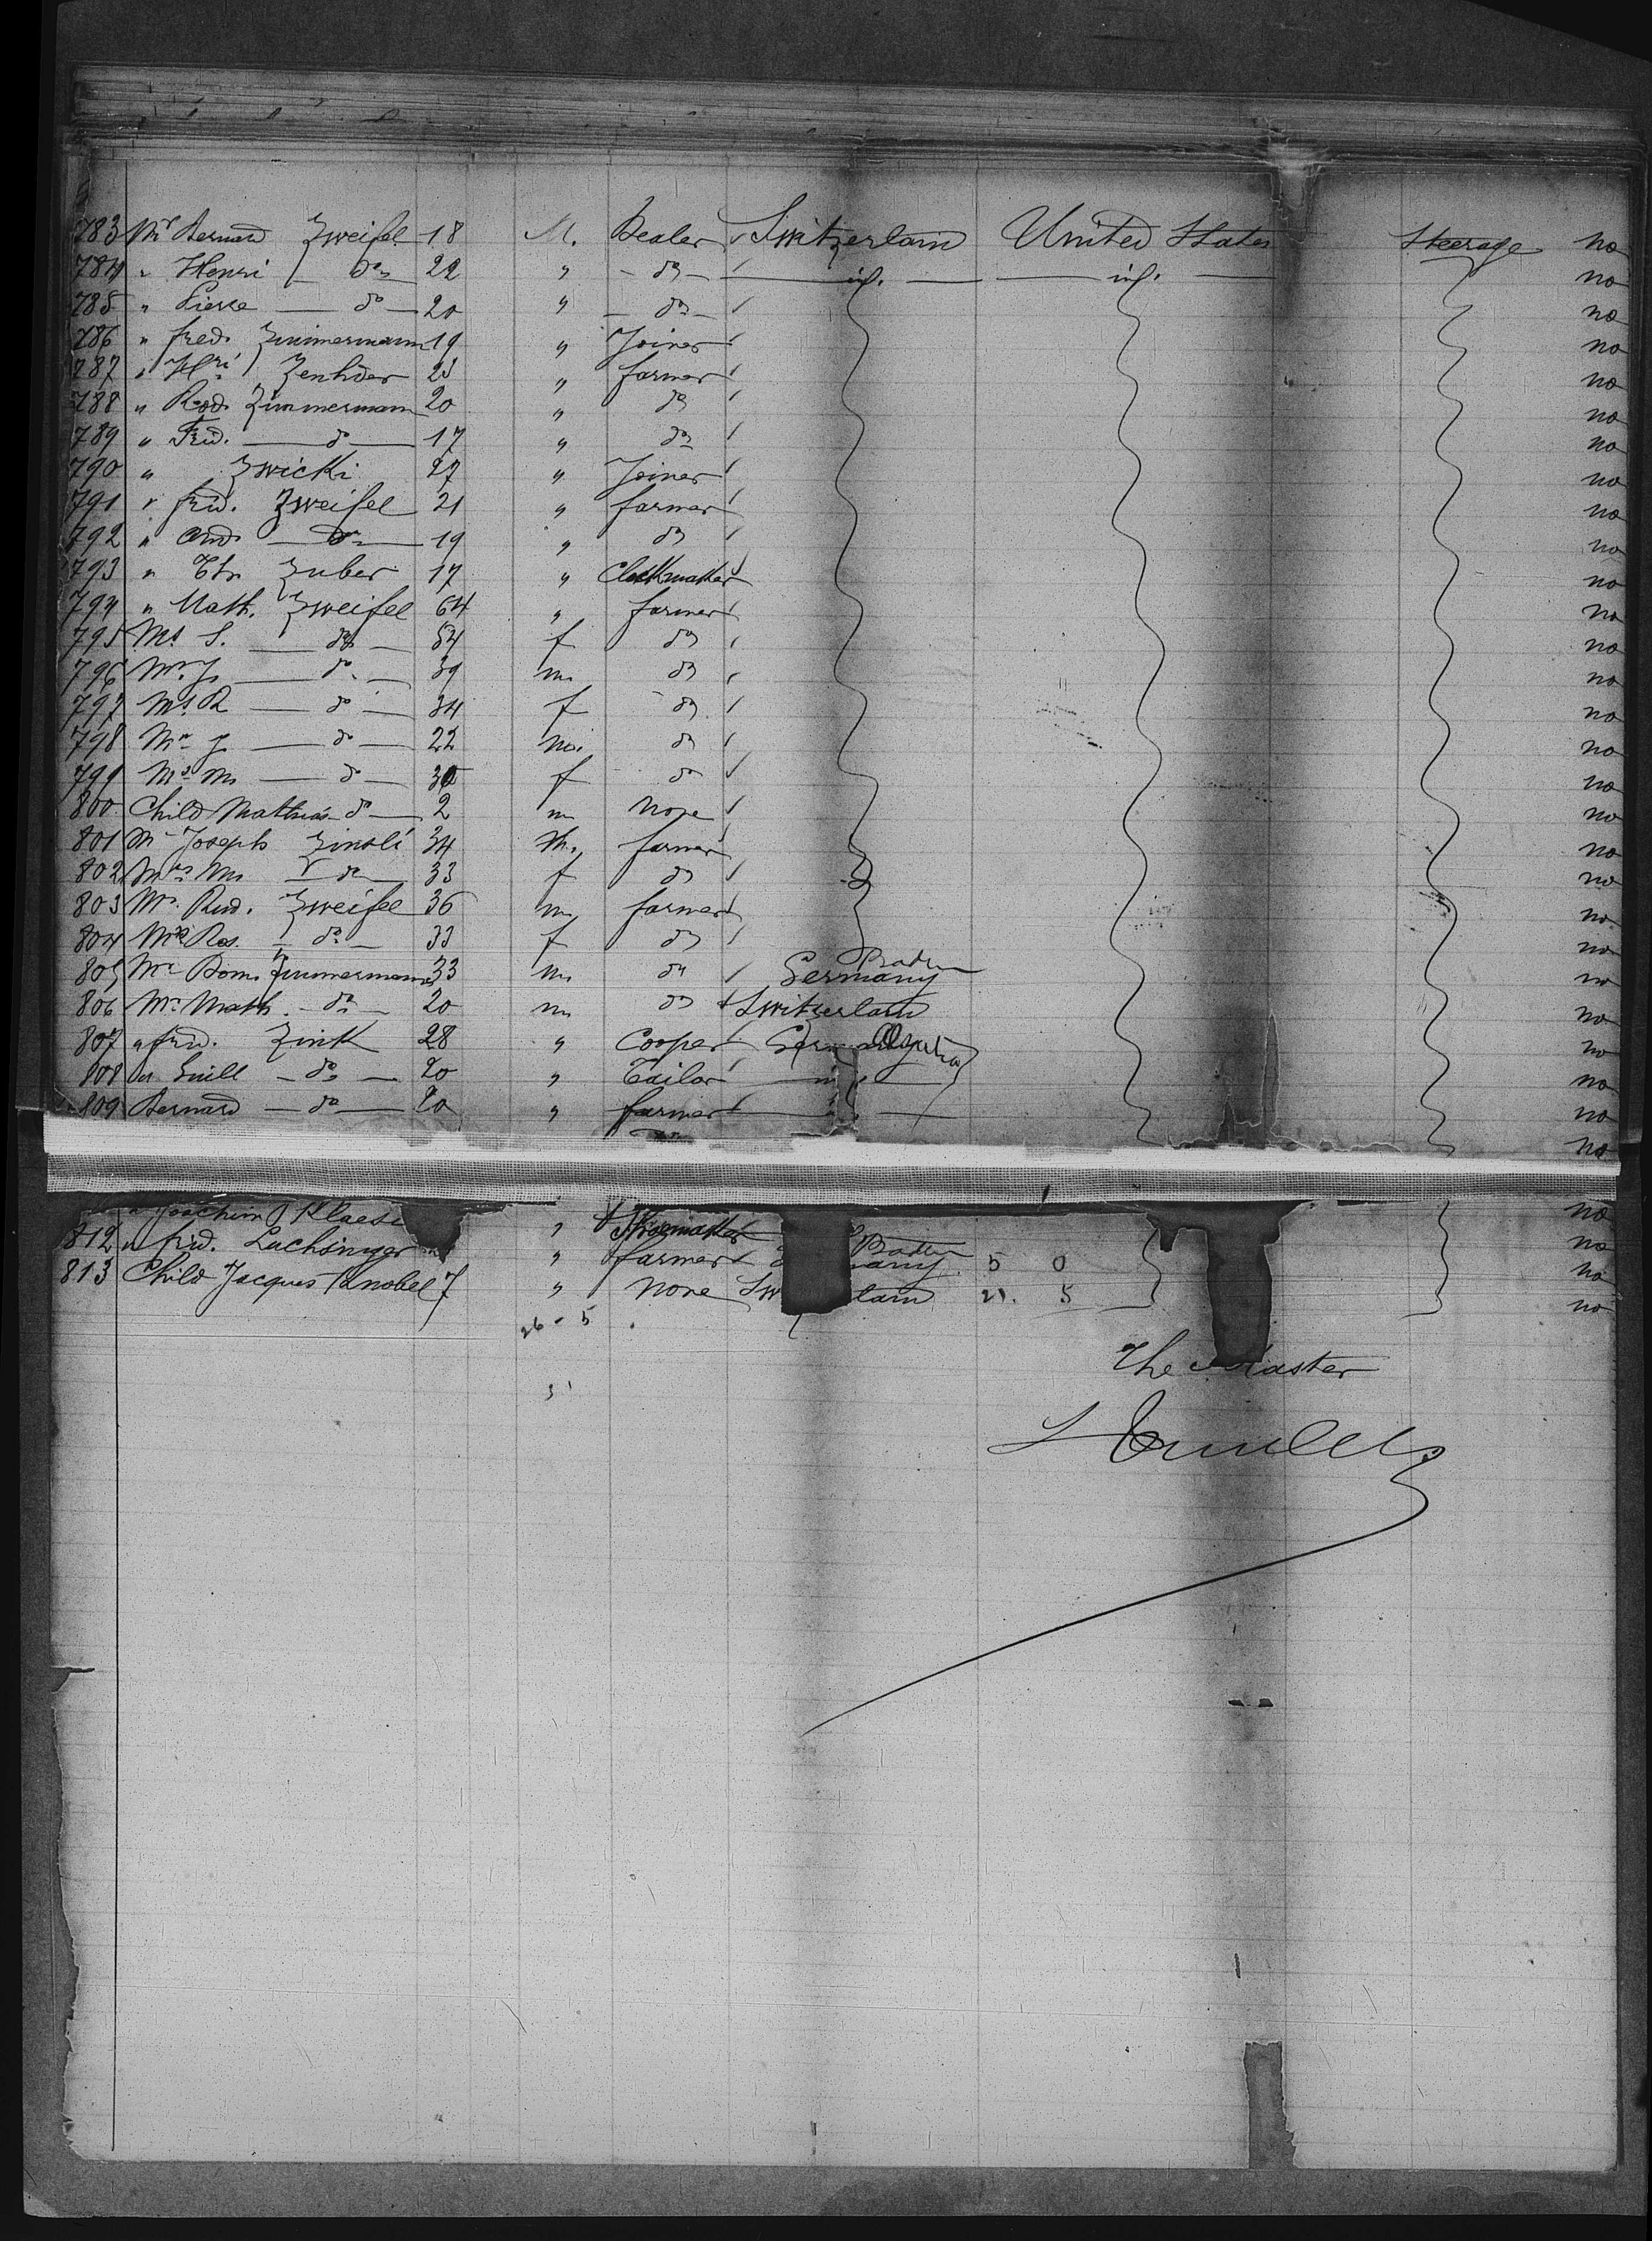 783 Mr Bernard Zweifel 18 M. Dealer Switzerland United States Steerage no
784 " Henri do 22 " do id. id. no
785 " Pierre do 20 " do no
786 " fred. Zimmermann 19 " Joiner no
787 " Hri Zenhder 23 " farmer no
788 " Rod. Zimmermann 20 " do no
789 " Frid. do 17 " do no
790 " Zwicki 27 " Joiner no
791 " frid. Zweifel 21 " farmer no
792 " And. do 19 " do no
793 " Zuber 17 " Clockmaker no
794 " Math. Zweifel 64 " farmer no
795 Ms S. do 54 f do no
796 Mr J. do 39 m do no
797 Ms R do 34 f do no
798 Mr J do 22 m. do no
799 Ms M do f do no
800 Child Mathias do 2 m None no
801 Mr Joseph Zinsli 34 M. farmer no
802 Mrs M do 33 f do no
803 Mr. Rud. Zweifel 36 m farmer no
804 Mrs Ros. do 33 f do no
805 Mr Dom. Zimmermann 33 m do Germany Baden no
806 Mr Math. do 20 m do Switzerland no
807 " frid. Zink 28 " Cooper no
808 " Guill do 20 " Tailor no
809 Bernard do 20 " farmer no
no
" Joachim Klaesi " Shoemaker no
812 " frid. Luchsinger " farmer Baden 5 0 no
813 Child Jacques Knobel 7 " None 21. 5 no
26 - 5 no
The Master